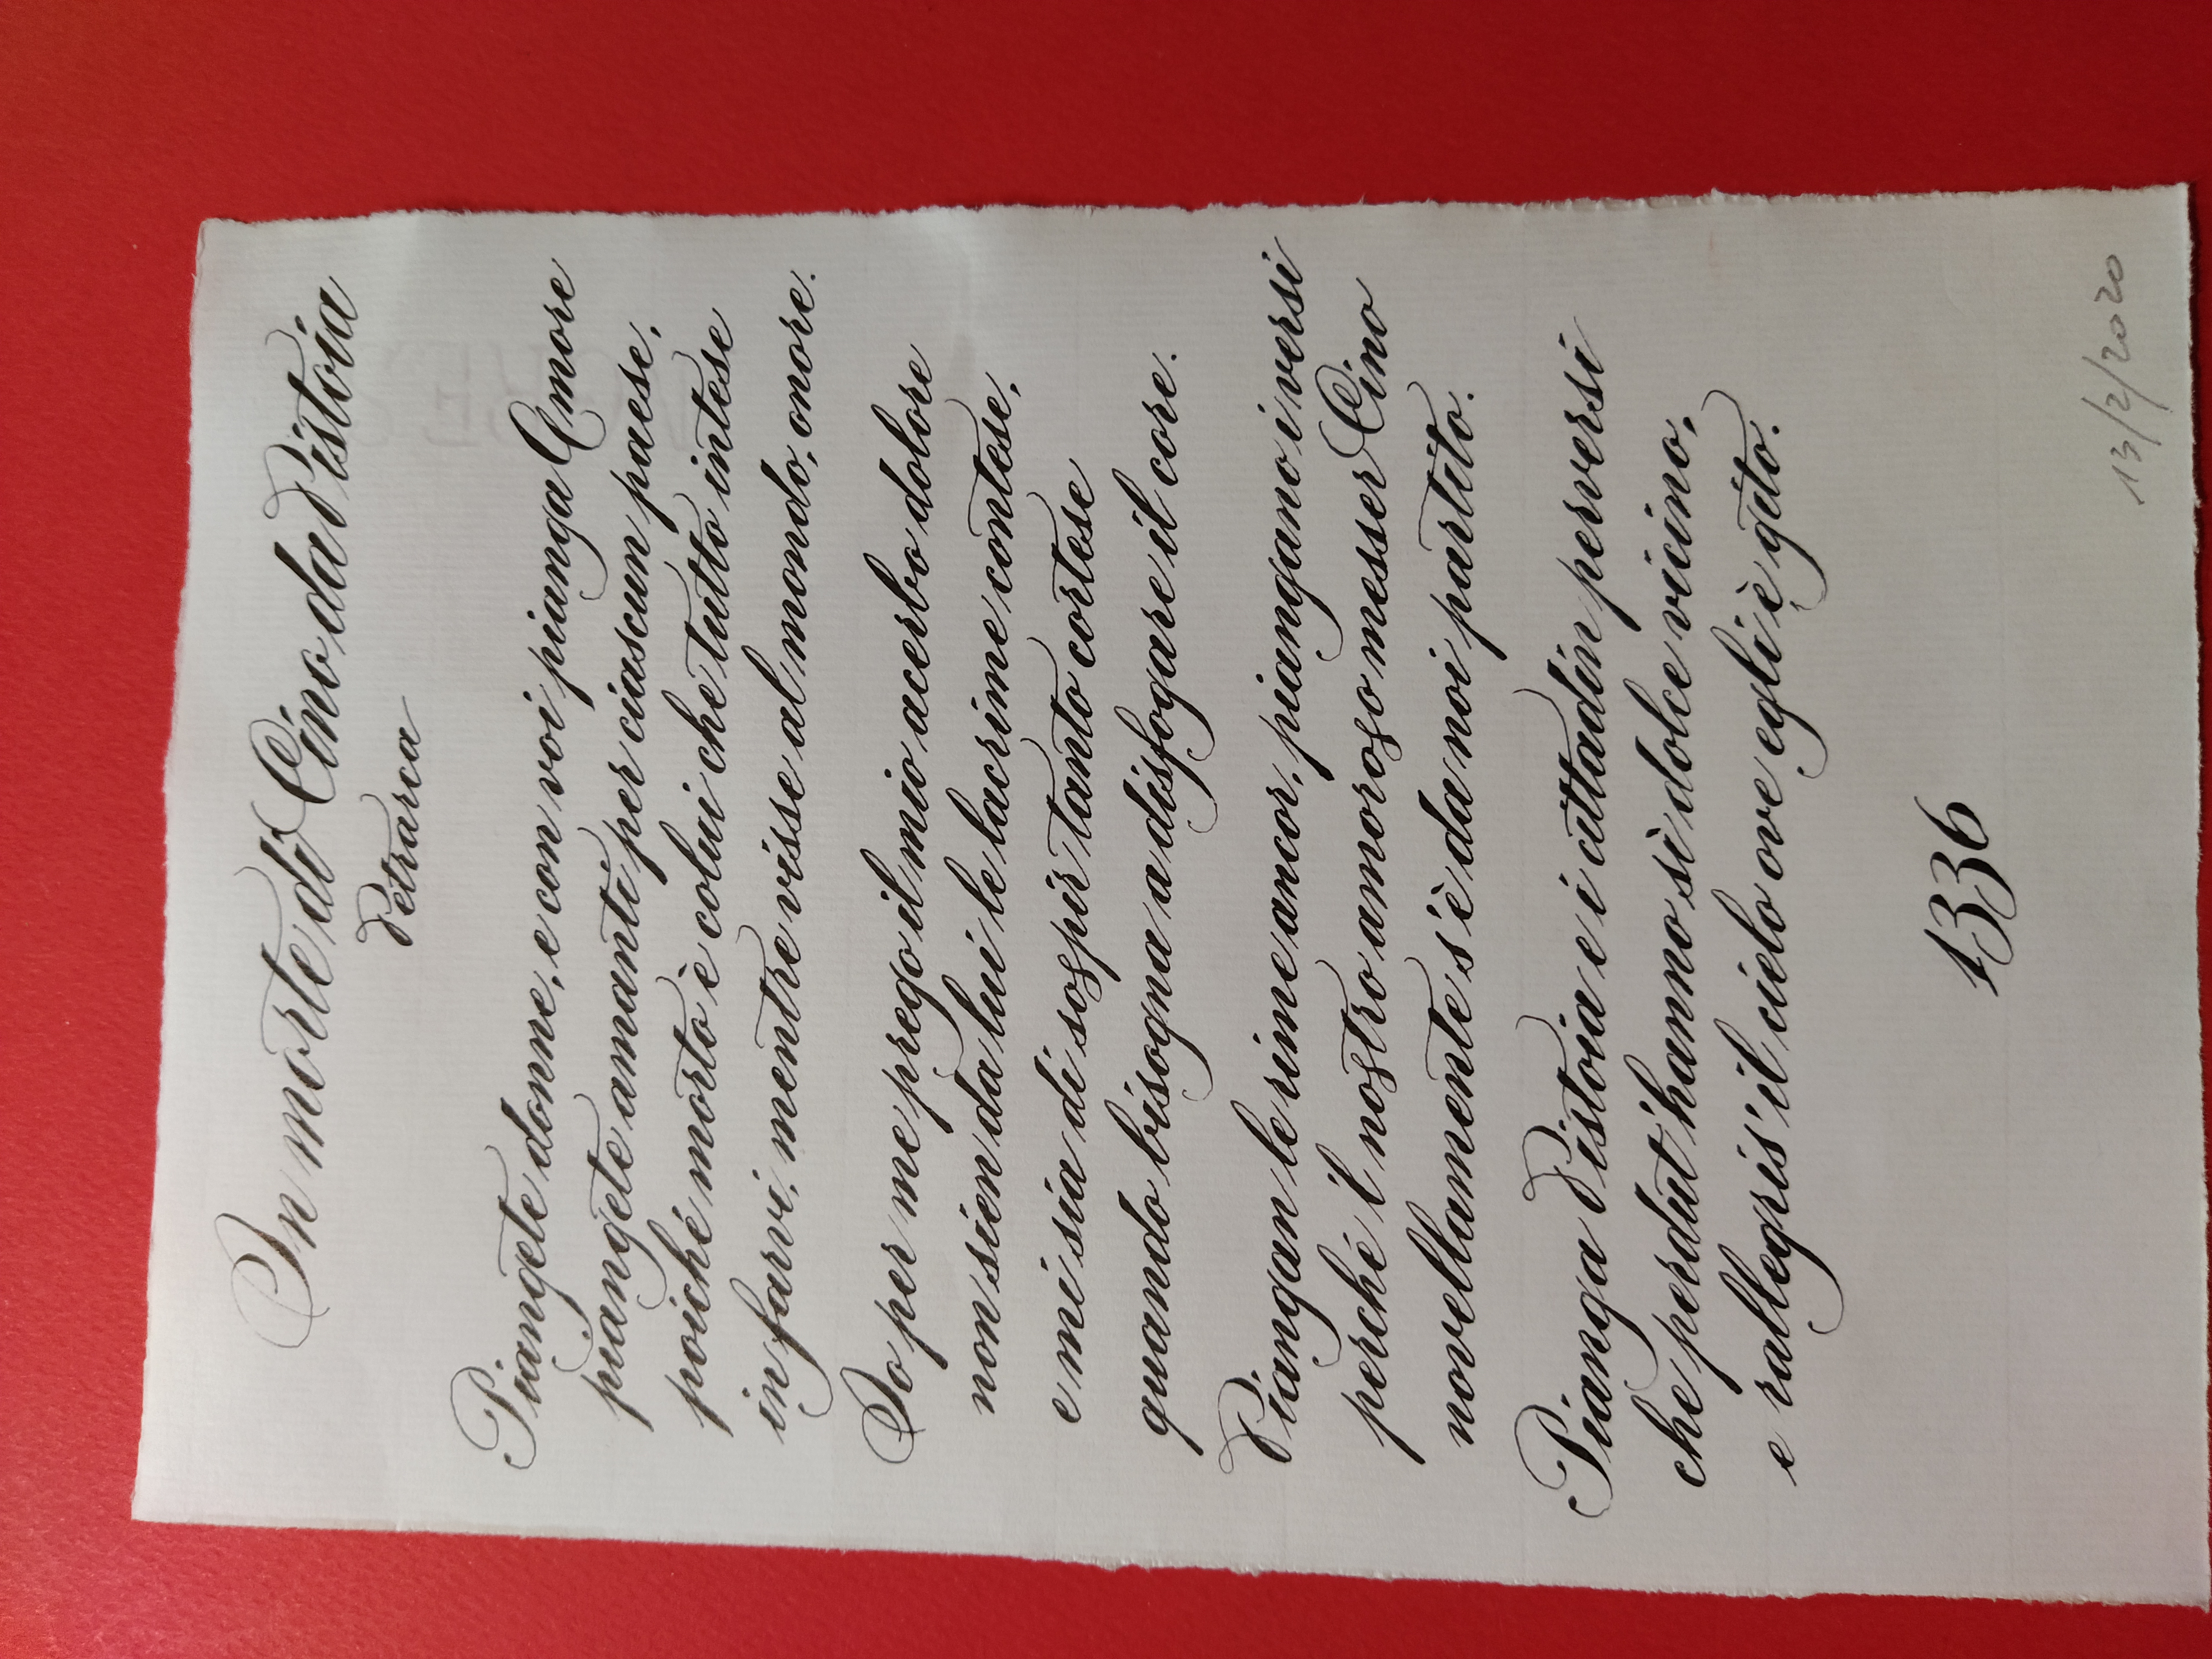 In morte di Cino da Pistoia
Petrarca
Piangete donne, e con voi pianga Amore
piangete amanti per ciascun paese,
poiché morto è colui che tutto intese
in farvi, mentre visse al mondo, onore.
Io per me prego il mio acerbo dolore
non sien da lui le lacrime contese,
e mi sia di sospir tanto cortese
quando bisogna a disfogare il core.
Piangan le rime ancor, piangano i versi
perché 'l nostro amoroso messer Cino
novellamente s'è da noi partito.
Pianga Pistoia e i cittadin perversi
che perdut'hanno sì dolce vicino,
e rallegris'il cielo ove egli è gito.
1336
13/2/2020